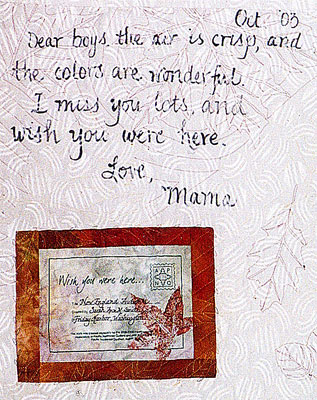 Oct '03
Dear boys, the air is crisp, and
the colors are wonderful.
I miss you lots, and
wish you were here.
Love,
Mama
Wish you were here...
New England
Friday Harbor, Washington